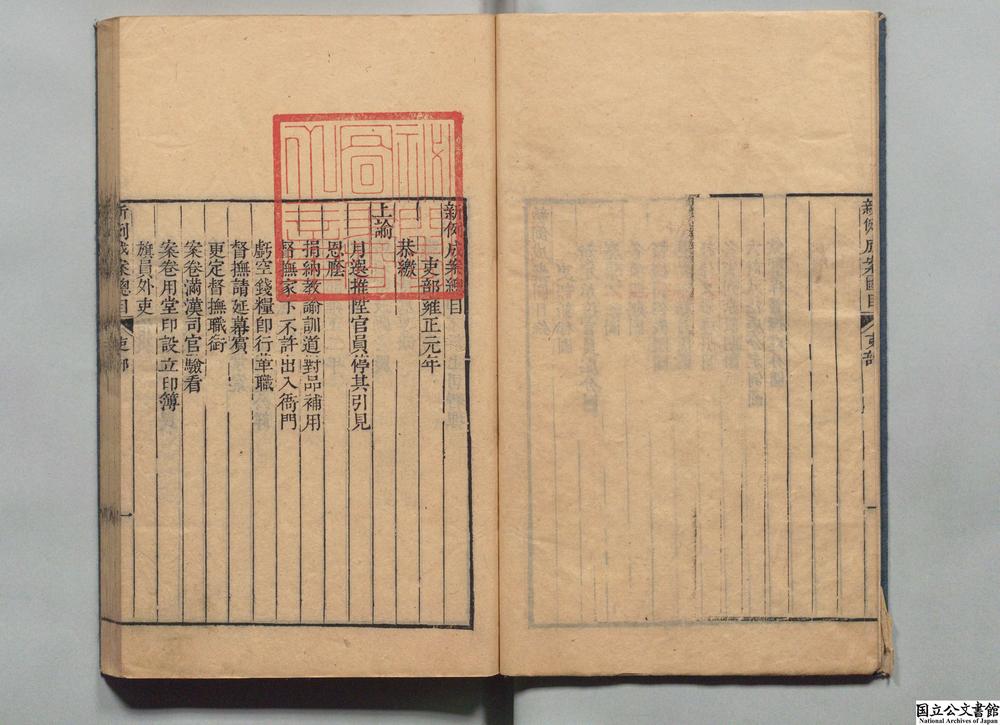 新例成案總目
吏部雍正元年
恭繳
上諭
月選推陞官員停其引見
恩廕
捐納教諭訓道對品補用
督撫家下不許出入衙門
虧空錢糧卽行革職
督撫請延幕賓
更定督撫職銜
案卷滿漢司官驗看
案卷用堂印設立印簿
旗員外吏
新例成案總目 吏部 一
国立公文書館
National Archives of Japan